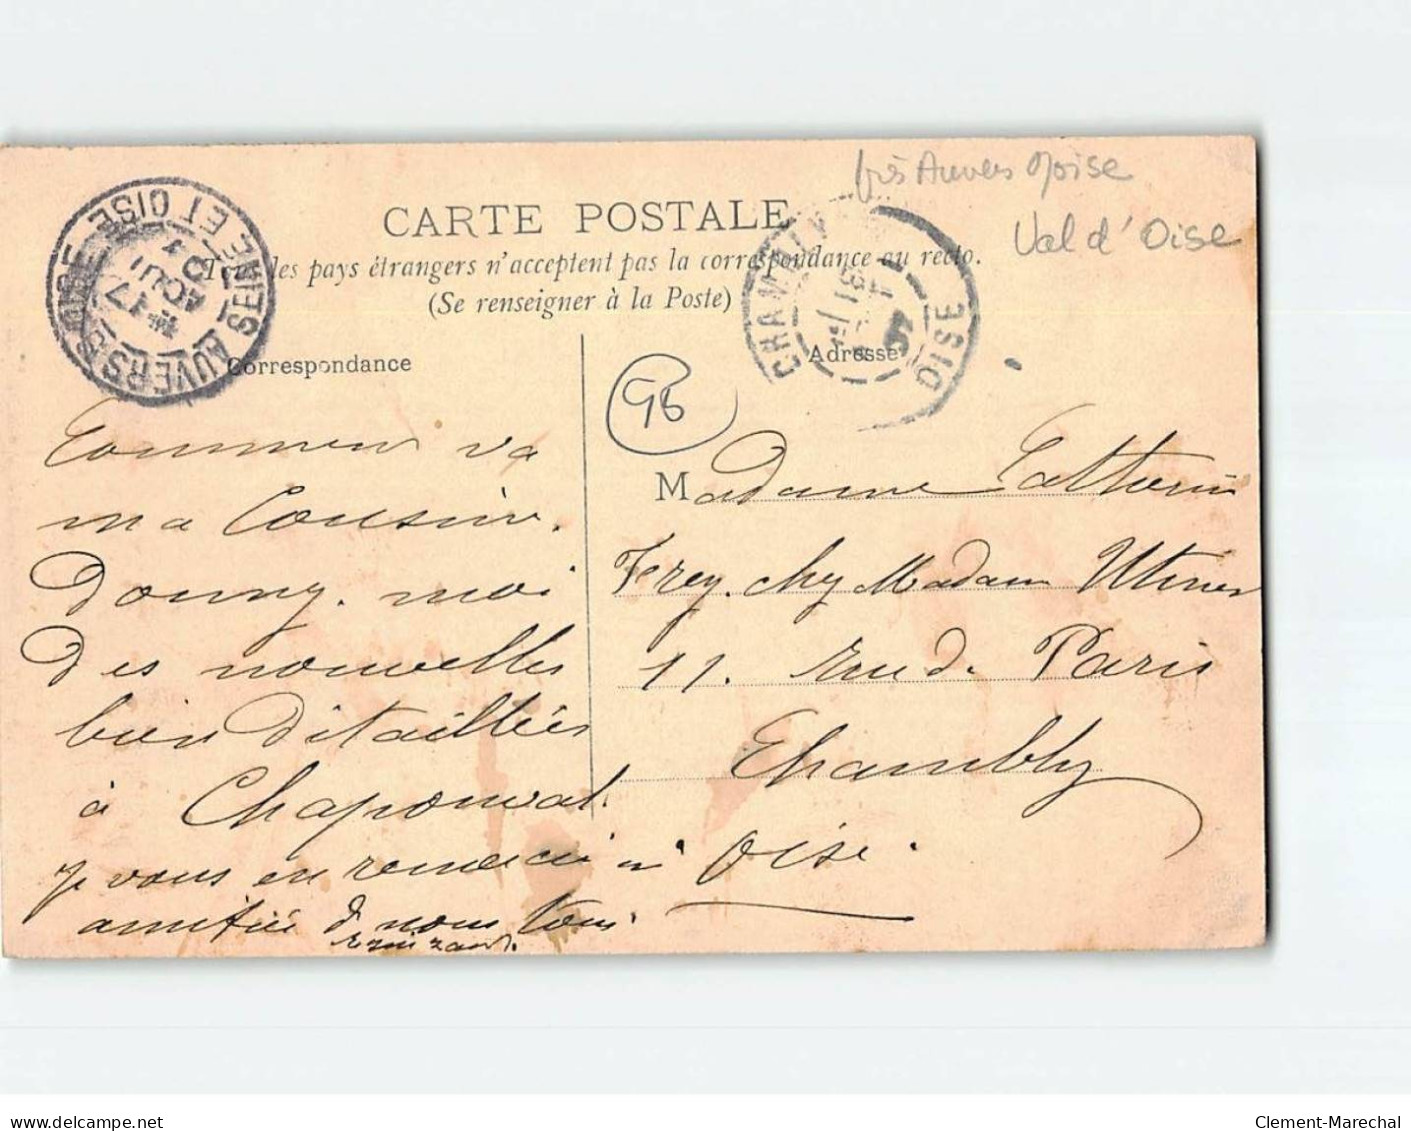 près Auvers s/oise
Val d'Oise
CARTE POSTALE
Tous les pays étrangers n'acceptent pas la correspondance au recto.
(Se renseigner à la Poste)
AUVERS SUR OISE
SEINE ET OISE
17
AOUT
CHAMBLY
OISE
Correspondance
Adresse
Comment va
ma Cousine.
Donnez-moi
des nouvelles
bien détaillées
à Chaponval.
je vous en remercie
amitié de nous tous.
Madame
Frey. chez Madame
11. rue de Paris
Chambly
Oise.
delcampe.net
Clement-Marechal